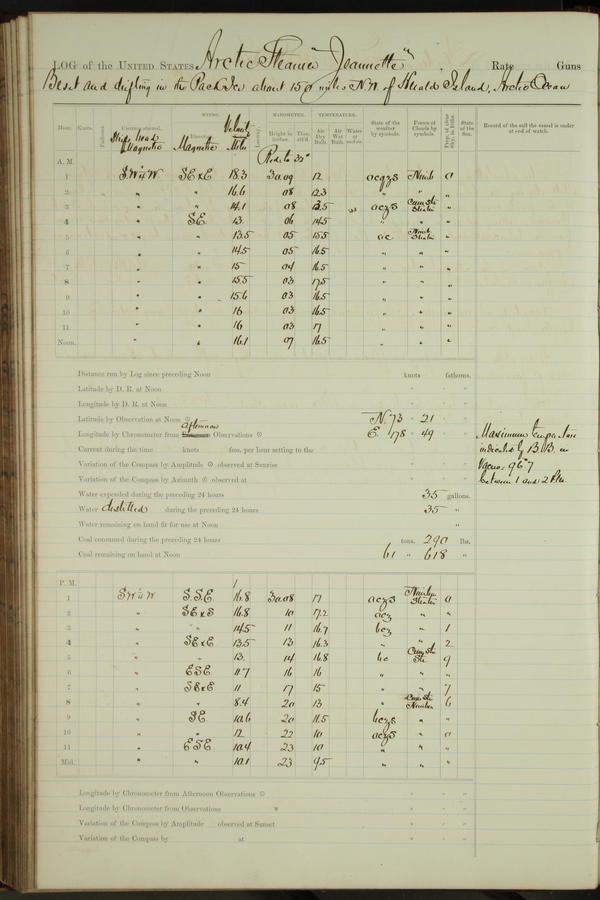 LOG of the UNITED STATES Arctic Steamer "Jeannette" Rate Guns
Beset and drifting in the Pack Ice about 150 miles N.W. of Herald Island, Arctic Ocean
WINDS. BAROMETER. TEMPERATURE.
Hour. Knots. Fathoms. Courses steered. Ship's head Magnetic Direction. Magnetic Velocity Miles Leeway. Height in inches. Ther. att'd. Air Dry Bulb. Air Wet Bulb. Water at surface. State of the weather by symbols. Forms of Clouds by symbols. Prop. of clear Sky, in 10ths. State of the Sea. Record of the sail the vessel is under at end of watch.
A. M. Reds to 32°
1 SW¼W SE x E 18.3 30.09 12 ocqzs Nimb 0
2 " " 16.6 08 12.3 " " "
3 " " 14.1 08 13.5 oczs Cum Str Stratus "
4 " SE 13 06 14.5 " " "
5 " " 13.5 05 15.5 oc Nimb Stratus "
6 " " 14.5 05 16.5 " " "
7 " " 15 04 16.5 " " "
8 " " 15.5 03 17.5 " " "
9 " " 15.6 03 16.5 " " "
10 " " 16 03 16.5 " " "
11 " " 16 03 17 " " "
Noon. " " 16.1 07 16.5 " " "
Distance run by Log since preceding Noon knots fathoms.
Latitude by D. R. at Noon ° ' "
Longitude by D. R. at Noon ° ' "
Latitude by Observation at Noon N. 73 ° 21 ' "
Longitude by Chronometer from afternoon Observations E. 178 ° 49 ' "
Current during the time knots fms. per hour setting to the
Variation of the Compass by Amplitude observed at Sunrise ° ' "
Variation of the Compass by Azimuth observed at ° ' "
Water expended during the preceding 24 hours 35 gallons.
Water distilled during the preceding 24 hours 35 "
Water remaining on hand fit for use at Noon "
Coal consumed during the preceding 24 hours tons. 290 lbs.
Coal remaining on hand at Noon 61 " 618 "
Maximum temperature
indicated by B.B. in
Vacuo 96°.7
between 1 and 2 P.M.
P. M.
1 SW¼W S.S.E 16.8 30.08 17 oczs Stratus 0
2 " SE x S 16.8 10 17.2 ocz " "
3 " " 14.5 11 16.7 bcz " 1
4 " SE x E 13.5 13 16.3 " " 2
5 " " 13. 14 16.8 bc Cum Str Str. 9
6 " ESE 11.7 16 16 " " "
7 " SE x E 11 17 15 " " 7
8 " " 8.4 20 13 " Cum Str 6
9 " SE 10.6 20 11.5 bczs " "
10 " " 12 22 10 oczs " 0
11 " ESE 10.4 23 10 " " "
Mid. " " 10.1 23 9.5 " " "
Longitude by Chronometer from Afternoon Observations ° ' "
Longitude by Chronometer from Observations ° ' "
Variation of the Compass by Amplitude observed at Sunset ° ' "
Variation of the Compass by at ° ' "